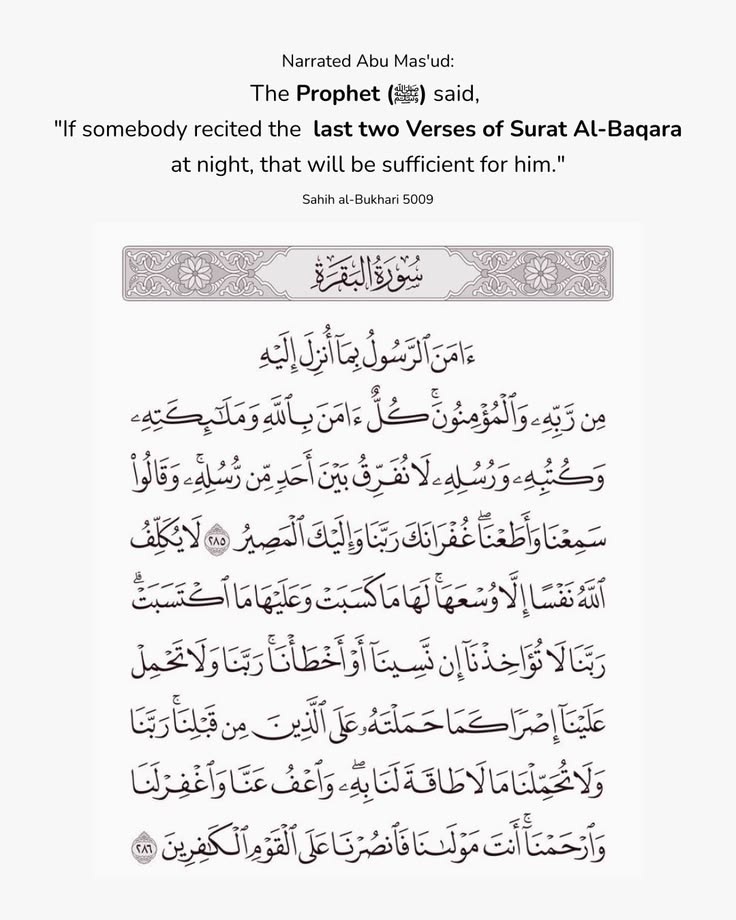 Narrated Abu Mas'ud:
The Prophet (ﷺ) said,
"If somebody recited the last two Verses of Surat Al-Baqara
at night, that will be sufficient for him."
Sahih al-Bukhari 5009
سُورَةُ البَقَرَةِ
ءَامَنَ ٱلرَّسُولُ بِمَآ أُنزِلَ إِلَيْهِ
مِن رَّبِّهِۦ وَٱلْمُؤْمِنُونَۚ كُلٌّ ءَامَنَ بِٱللَّهِ وَمَلَٰٓئِكَتِهِۦ
وَكُتُبِهِۦ وَرُسُلِهِۦ لَا نُفَرِّقُ بَيْنَ أَحَدٍ مِّن رُّسُلِهِۦۚ وَقَالُوا۟
سَمِعْنَا وَأَطَعْنَاۖ غُفْرَانَكَ رَبَّنَا وَإِلَيْكَ ٱلْمَصِيرُ ٢٨٥ لَا يُكَلِّفُ
ٱللَّهُ نَفْسًا إِلَّا وُسْعَهَاۚ لَهَا مَا كَسَبَتْ وَعَلَيْهَا مَا ٱكْتَسَبَتْۗ
رَبَّنَا لَا تُؤَاخِذْنَآ إِن نَّسِينَآ أَوْ أَخْطَأْنَاۚ رَبَّنَا وَلَا تَحْمِلْ
عَلَيْنَآ إِصْرًا كَمَا حَمَلْتَهُۥ عَلَى ٱلَّذِينَ مِن قَبْلِنَاۚ رَبَّنَا
وَلَا تُحَمِّلْنَا مَا لَا طَاقَةَ لَنَا بِهِۦۖ وَٱعْفُ عَنَّا وَٱغْفِرْ لَنَا
وَٱرْحَمْنَآۚ أَنتَ مَوْلَىٰنَا فَٱنصُرْنَا عَلَى ٱلْقَوْمِ ٱلْكَٰفِرِينَ ٢٨٦